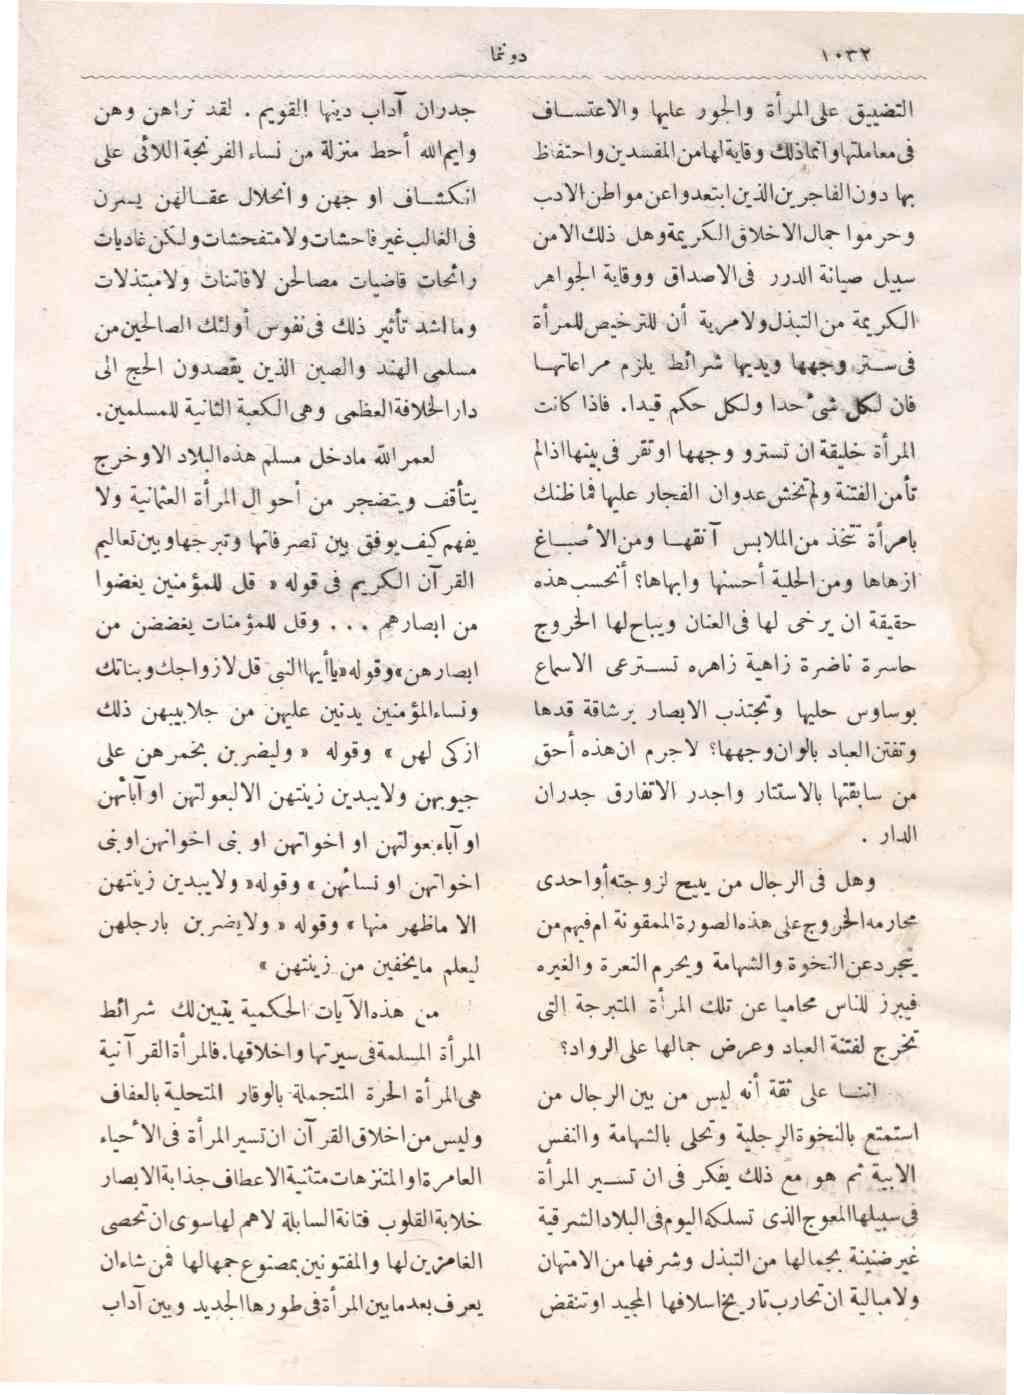 ١٠٣٢
دونما
التضييق على المرأة والجور عليها والاعتساف
فى معاملتها وانما ذلك وقاية لها من المفسدين واحتفاظ
بها دون الفاجرين الذين ابتعدوا عن مواطن الادب
وحرموا جمال الاخلاق الكريمة وهل ذلك الا من
سبيل صيانة الدرر فى الاصداق ووقاية الجواهر
الكريمة من التبذل ولا مرية أن للترخيص للمرأة
فى ستر وجهها ويديها شرائط يلزم مراعاتها
فان لكل شىء حدا ولكل حكم قيدا. فاذا كانت
المرأة خليقة ان تسترو وجهها او تقر فى بيتها اذا لم
تأمن الفتنة ولم تخش عدوان الفجار عليها فما ظنك
بامرأة تتخذ من الملابس آنقها ومن الأصباغ
ازهاها ومن الحلية أحسنها وابهاها؟ أتحسب هذه
حقيقة ان يرخى لها فى العنان ويباح لها الخروج
حاسرة ناضرة زاهية زاهره تسترعى الاسماع
بوساوس حليها وتجتذب الابصار برشاقة قدها
وتفتن العباد بالوان وجهها؟ لا جرم ان هذه أحق
من سابقتها بالاستتار واجدر الا تفارق جدران
الدار .
وهل فى الرجال من يبيح لزوجته أو احدى
محارمه الخروج على هذه الصورة الممقوتة ام فيهم من
يتجرد عن النخوة والشهامة ويحرم النعرة والغيره
فيبرز للناس محاميا عن تلك المرأة المتبرجة التى
تخرج لفتنة العباد وعرض جمالها على الرواد؟
اننا على ثقة أنه ليس من بين الرجال من
استمتع بالنخوة الرجلية وتحلى بالشهامة والنفس
الابية ثم هو مع ذلك يفكر فى ان تسير المرأة
فى سبيلها المعوج الذى تسلكه اليوم فى البلاد الشرقية
غير ضنينة بجمالها من التبذل وشرفها من الامتهان
ولا مبالية ان تحارب تاريخ اسلافها المجيد او تنقض
جدران آداب دينها القويم . لقد تراهن وهن
وايم الله أحط منزلة من نساء الفرنجة اللائى على
انكشاف او جهن وانحلال عقالهن يسرن
فى الغالب غير فاحشات ولا متفحشات ولكن غاديات
رائحات قاضيات مصالحن لا فاتنات ولا مبتذلات
وما اشد تأثير ذلك فى نفوس أولئك الصالحين من
مسلمى الهند والصين الذين يقصدون الحج الى
دار الخلافة العظمى وهى الكعبة الثانية للمسلمين.
لعمر الله ما دخل مسلم هذه البلاد الا وخرج
يتأفف ويتضجر من أحوال المرأة العثمانية ولا
يفهم كيف يوفق بين تصرفاتها وتبرجها وبين تعاليم
القرآن الكريم فى قوله « قل للمؤمنين يغضوا
من ابصارهم ... وقل للمؤمنات يغضضن من
ابصارهن» وقوله «يا أيها النبى قل لازواجك وبناتك
ونساء المؤمنين يدنين عليهن من جلابيبهن ذلك
ازكى لهن » وقوله « وليضربن بخمرهن على
جيوبهن ولا يبدين زينتهن الا لبعولتهن او آبائهن
او آباء بعولتهن او اخواتهن او بنى اخوانهن او بنى
اخواتهن او نسائهن » وقوله « ولا يبدين زينتهن
الا ما ظهر منها » وقوله « ولا يضربن بارجلهن
ليعلم ما يخفين من زينتهن »
من هذه الآيات الحكمية يتبين لك شرائط
المرأة المسلمة فى سيرتها واخلاقها. فالمرأة القرآنية
هى المرأة الحرة المتجملة بالوقار المتحلية بالعفاف
وليس من اخلاق القرآن ان تسير المرأة فى الأحياء
العامرة او المتنزهات متثنية الاعطاف جذابة الابصار
خلابة القلوب فتانة السابلة لاهم لها سوى ان تحصى
الغامزين لها والمفتونين بمصنوع جمهالها فمن شاء ان
يعرف بعد ما بين المرأة فى طورها الجديد وبين آداب